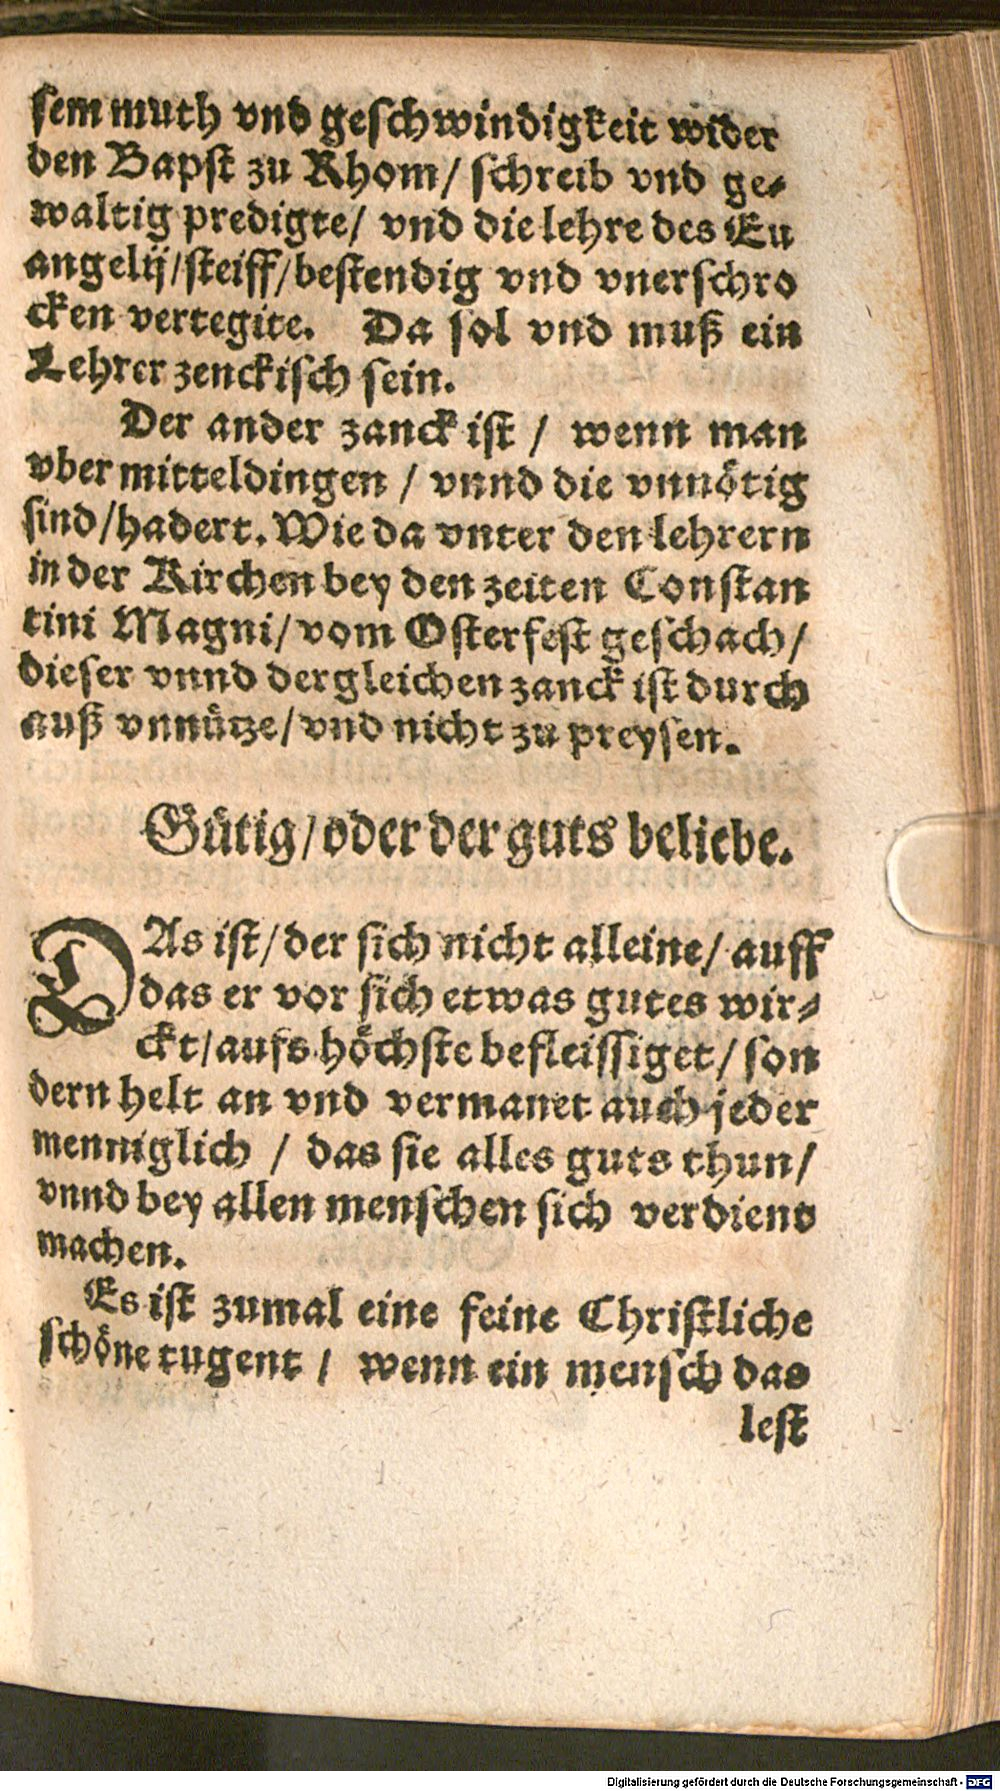 sem muth vnd geschwindigkeit wider
den Bapst zu Rhom/ schreib vnd ge-
waltig predigte/ vnd die lehre des Eu
angelij/steiff/bestendig vnd vnerschro
cken vertegite. Da sol vnd muß ein
Lehrer zenckisch sein.
Der ander zanck ist / wenn man
vber mitteldingen / vnnd die vnnötig
sind/hadert. Wie da vnter den lehrern
in der Kirchen bey den zeiten Constan
tini Magni/ vom Osterfest geschach/
dieser vnnd dergleichen zanck ist durch
auß vnnütze/ vnd nicht zu preysen.
Gütig/ oder der guts beliebe.
DAs ist/ der sich nicht alleine/ auff
das er vor sich etwas gutes wir-
ckt/ aufs höchste befleissiget/ son
dern helt an vnd vermanet auch jeder
menniglich / das sie alles guts thun/
vnnd bey allen menschen sich verdient
machen.
Es ist zumal eine feine Christliche
schöne tugent / wenn ein mensch das
lest
Digitalisierung gefördert durch die Deutsche Forschungsgemeinschaft - DFG